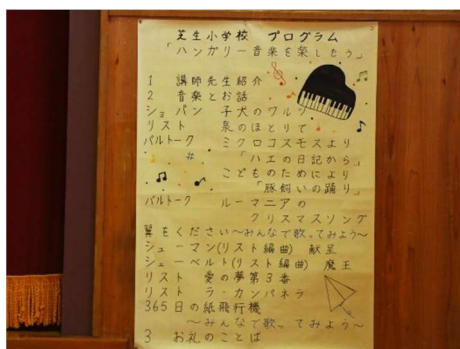 芝生小学校 プログラム
「ハンガリー音楽を楽しもう」
1 講師先生紹介
2 音楽とお話
ショパン 子犬のワルツ
リスト 泉のほとりで
バルトーク ミクロコスモスより
「ハエの日記から」
こどものためにより
「豚飼いの踊り」
バルトーク ルーマニアの
クリスマスソング
翼をください〜みんなで歌ってみよう〜
シューマン(リスト編曲) 献呈
シューベルト(リスト編曲) 魔王
リスト 愛の夢第3番
リスト ラ・カンパネラ
365日の紙飛行機
〜みんなで歌ってみよう〜
3 お礼のことば